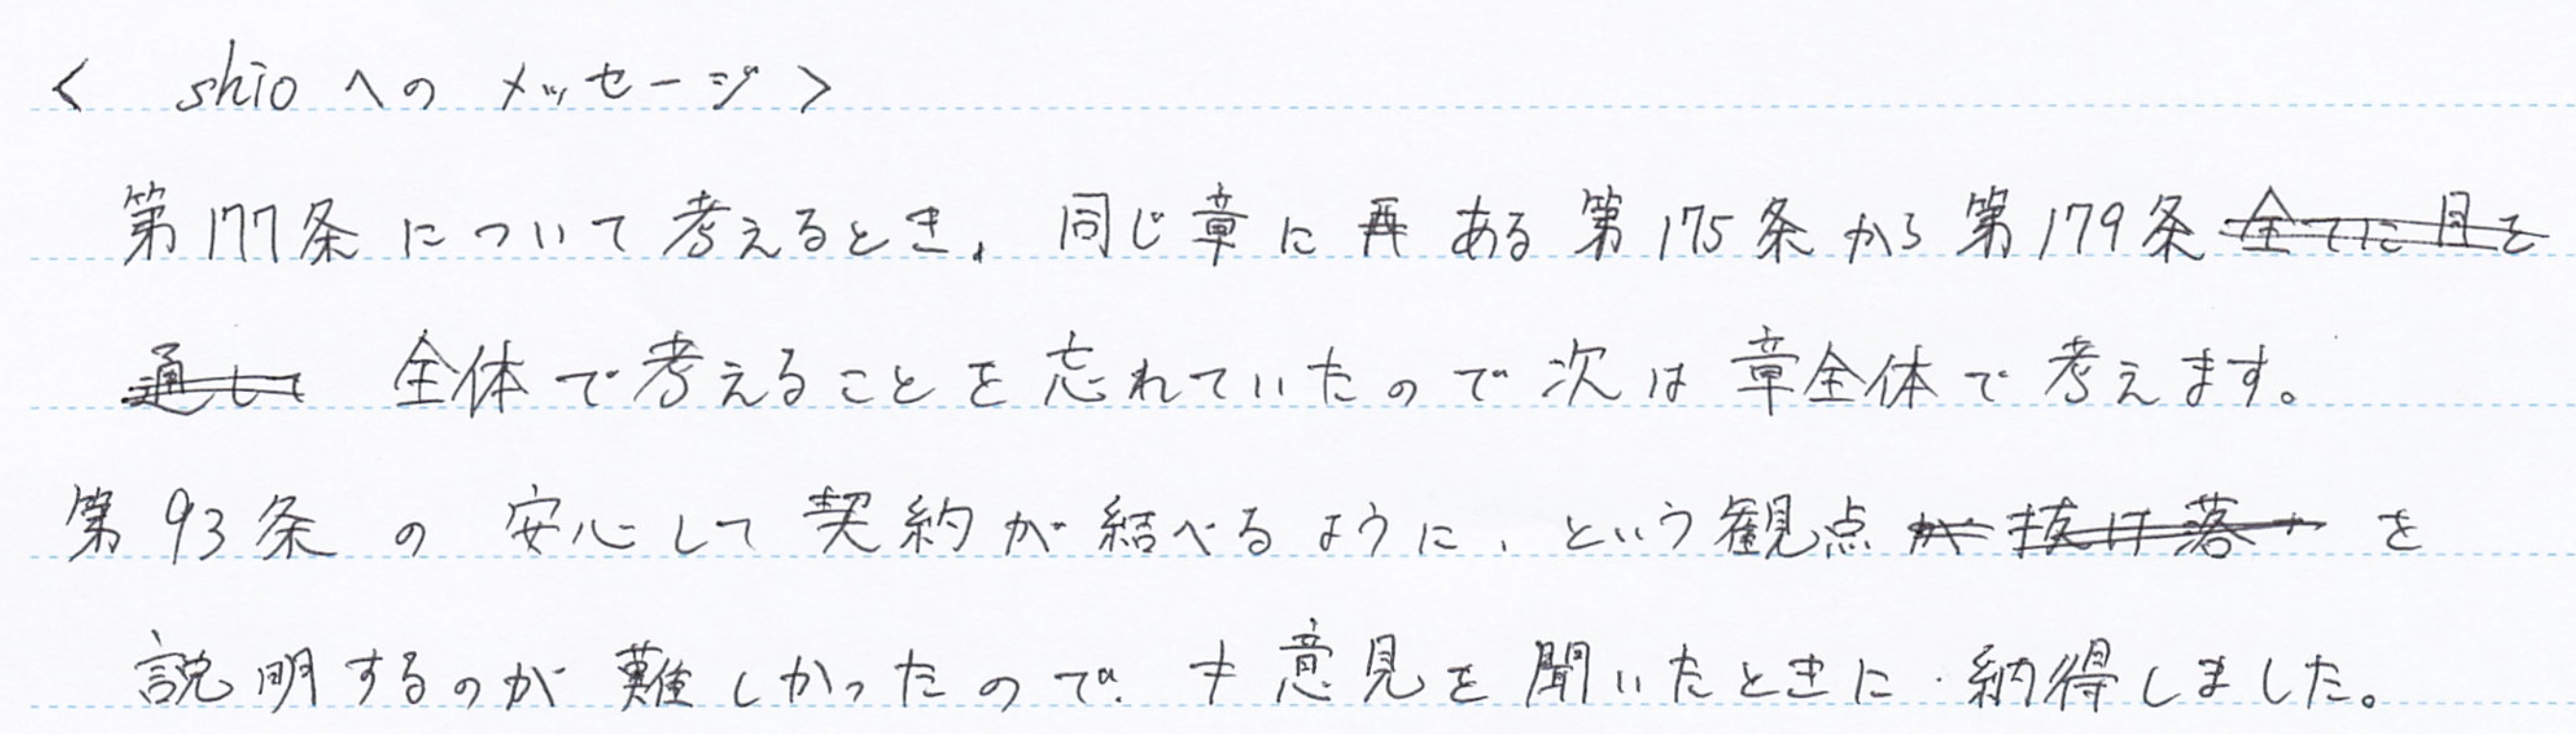 < shioへの メッセージ >
第177条について考えるとき、同じ章に ある第175条から第179条 全てに目を
通し 全体で考えることを忘れていたので次は章全体で考えます。
第93条の安心して契約が結べるように、という観点 が 抜け落 を
説明するのが難しかったので、意見を聞いたときに納得しました。